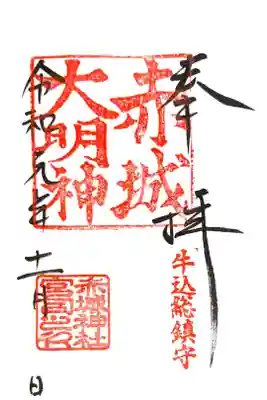 奉拝
赤城
大明神
牛込総鎮守
令和元年
十一月
日
赤城神社
宮司之印